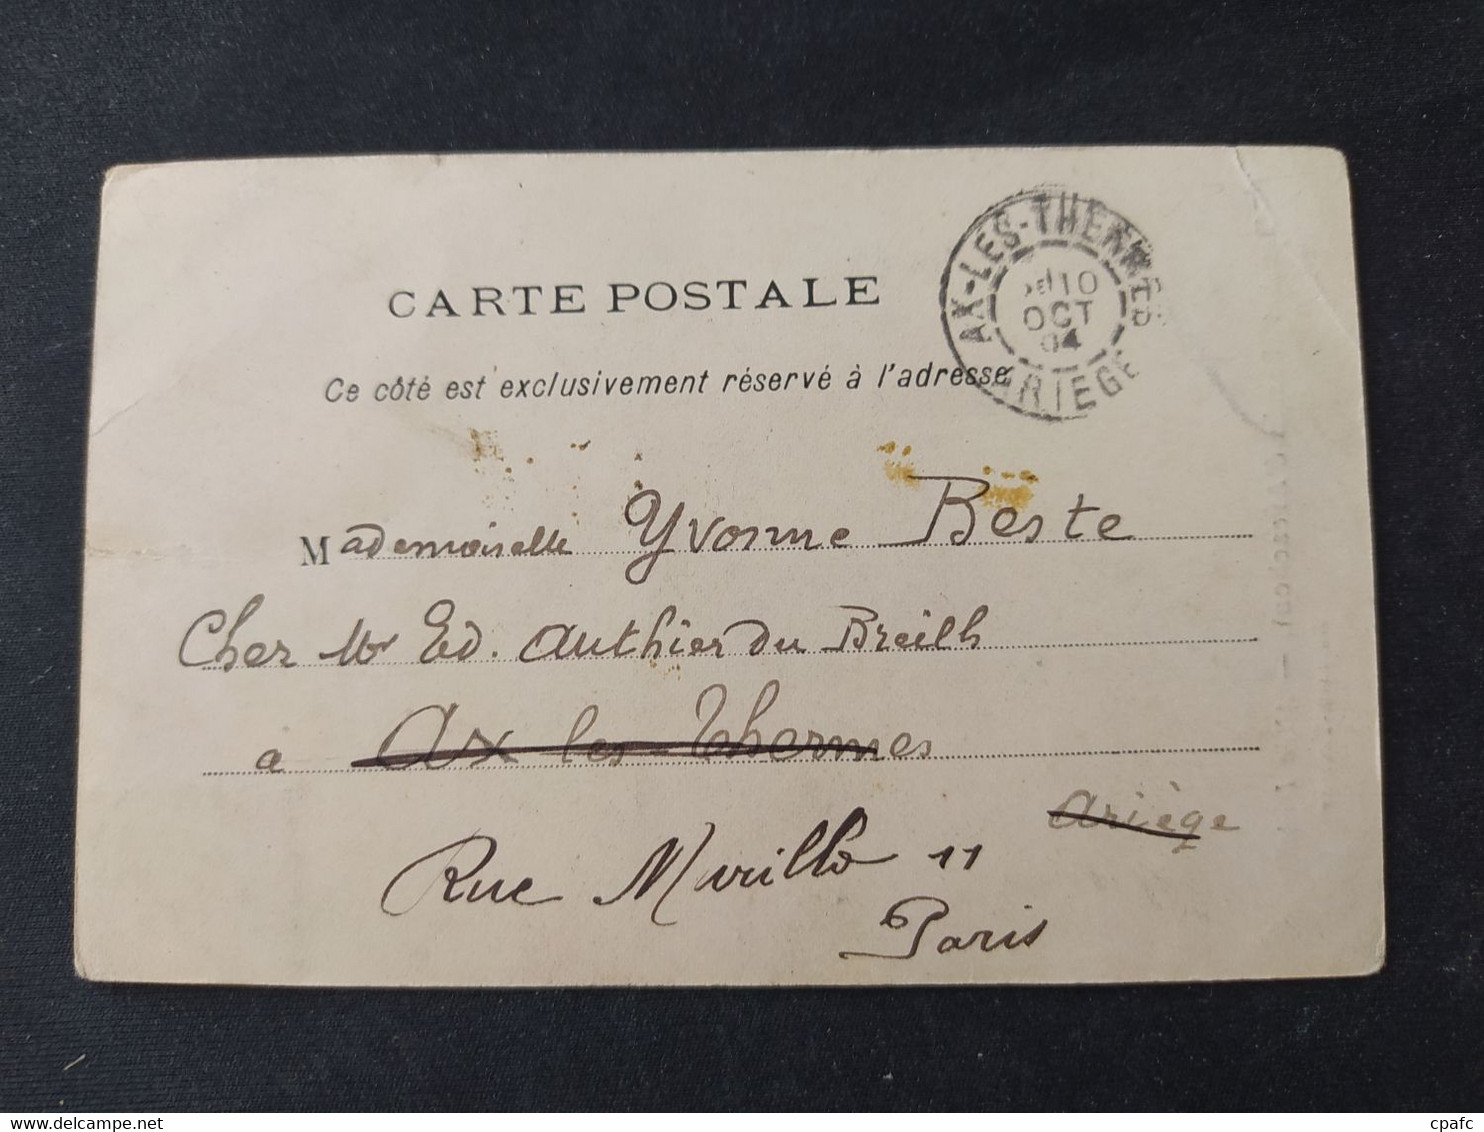 CARTE POSTALE
Ce côté est exclusivement réservé à l'adresse
AX-LES-THERMES
10
OCT
04
ARIEGE
Mademoiselle Yvonne Beste
Cher Mr Ed. Authier du Breilh
a Ax les Thermes
Ariège
Rue Murillo 11
Paris
cpafc